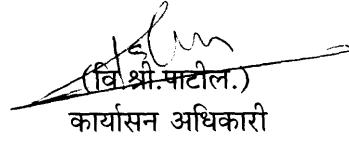 (वि.श्री.पाटील.)
कार्यासन अधिकारी